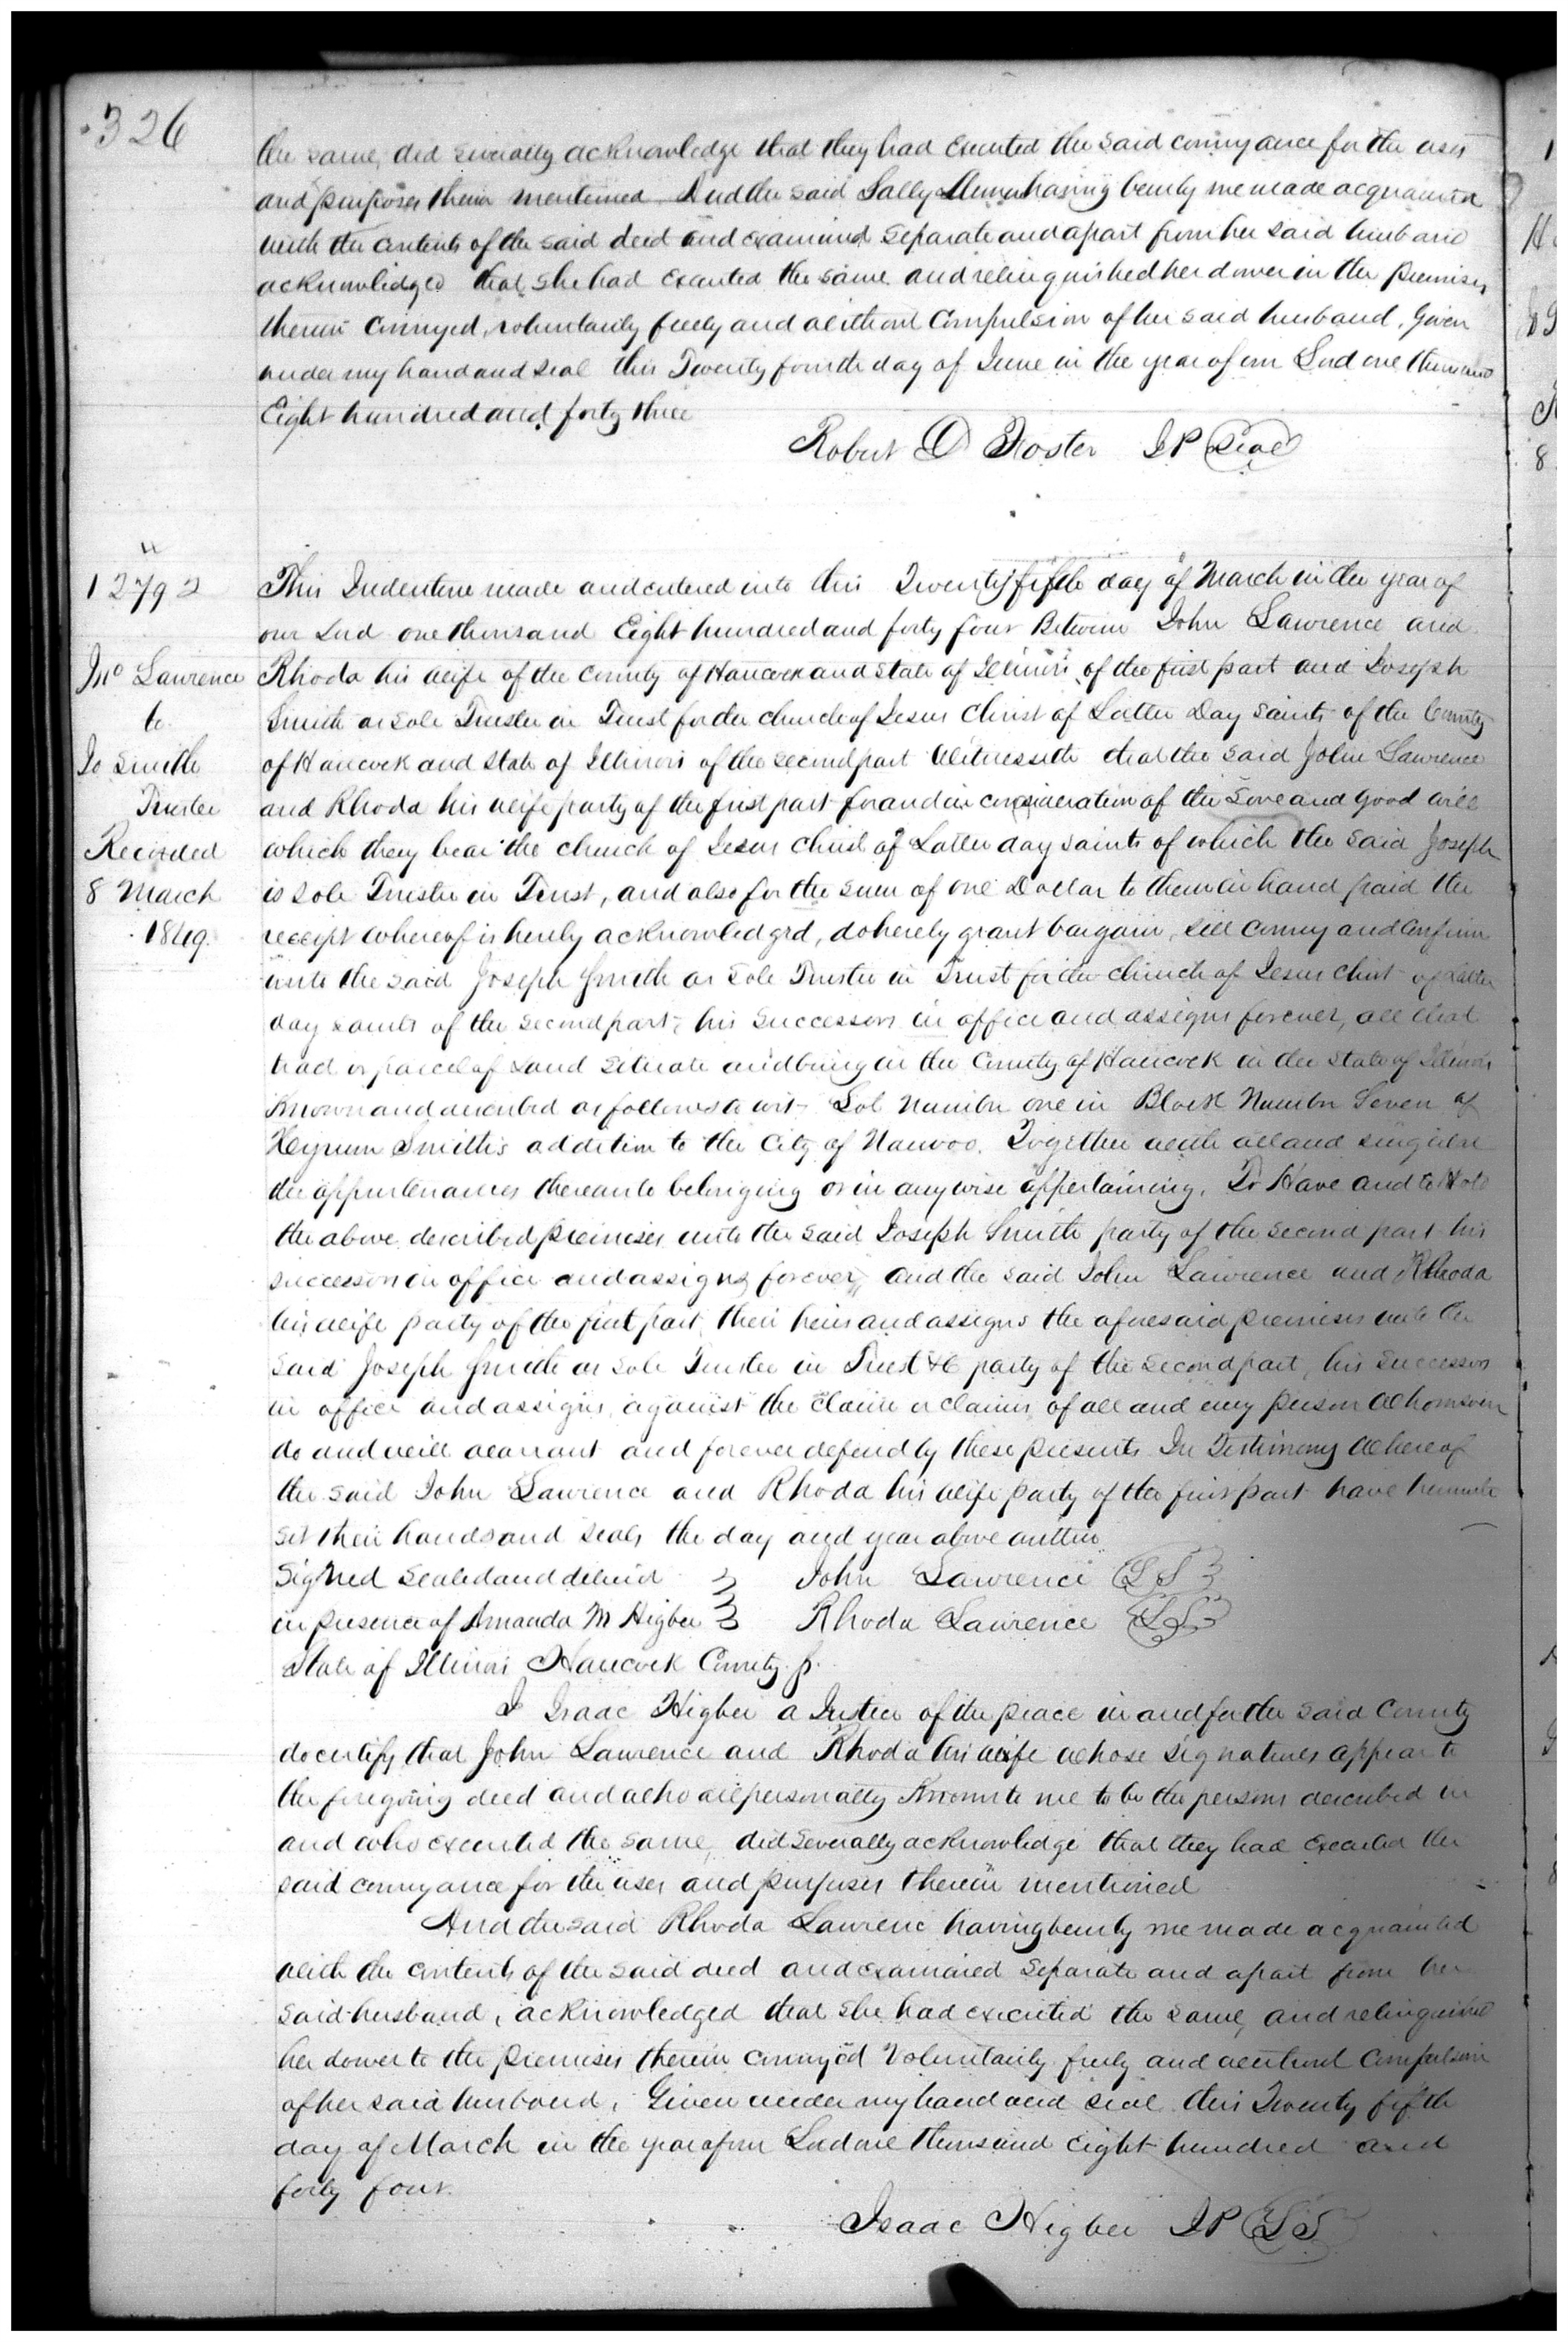 326
the same, did severally acknowledge that they had executed the said conveyance for the uses
and purposes therein mentioned And the said Sally having been by me made acquainted
with the contents of the said deed and examined separate and apart from her said husband
acknowledged that she had executed the same and relinquished her dower in the premises
therein conveyed, voluntarily freely and without compulsion of her said husband. Given
under my hand and seal this Twenty fourth day of June in the year of our Lord one thousand
Eight hundred and forty three
Robert D Foster JP Seal
12792
This Indenture made and entered into this Twenty fifth day of March in the year of
our Lord one thousand Eight hundred and forty four Between John Lawrence and
Jno Lawrence
Rhoda his wife of the County of Hancock and State of Illinois of the first part and Joseph
to
Smith as Sole Trustee in Trust for the church of Jesus Christ of Latter Day Saints of the County
Jo Smith
of Hancock and State of Illinois of the second part Witnesseth that the said John Lawrence
Trustee
and Rhoda his wife party of the first part for and in consideration of the Love and good will
Recorded
which they bear the church of Jesus Christ of Latter day saints of which the said Joseph
8 March
is sole Trustee in Trust, and also for the sum of one Dollar to them in hand paid the
1849.
receipt whereof is hereby acknowledgrd, do hereby grant bargain, sell convey and confirm
unto the said Joseph Smith as Sole Trustee in Trust for the church of Jesus Christ of Latter
day saints of the second part, his successors in office and assigns forever, all that
tract or parcel of Land situate and being in the County of Hancock in the State of Illinois
Known and described as follows to wit- Lot Number one in Block Number Seven of
Heyrum Smiths addition to the City of Nauvoo. Together with all and singular
the appurtenances thereunto belonging or in anywise appertaining. To Have and to Hold
the above described premises unto the said Joseph Smith party of the second part his
successors in office and assigns forever, and the said John Lawrence and Rhoda
his wife party of the first part, their heirs and assigns the aforesaid premises unto the
said Joseph Smith as Sole Trustee in Trust &c party of the second part, his successors
in office and assigns, against the claim or claims of all and every person whomsoever
do and will warrant and forever defend by these presents. In Testimony whereof
the said John Lawrence and Rhoda his wife party of the first part have hereunto
set their hands and seals the day and year above written
Signed Sealed and deliverd John Lawrence LS
in presence of Amanda M Higbee Rhoda Lawrence LS
State of Illinois Hancock County
I Isaac Higbee a Justice of the peace in and for the said County
do certify that John Lawrence and Rhoda his wife whose signatures appear to
the foregoing deed and who are personally Known to me to be the persons described in
and who executed the same, did severally acknowledge that they had executed the
said conveyance for the uses and purposes therein mentioned
And the said Rhoda Lawrenc having been by me made acquainted
with the contents of the said deed and examined separate and apart from her
said husband, acknowledged that she had executed the same, and relinquished
her dower to the premises therein conveyed Voluntarily freely and without compulsion
of her said husband, Given under my hand and seal this Twenty fifth
day of March in the year of our Lord one thousand eight hundred and
forty four.
Isaac Higbee JP LS